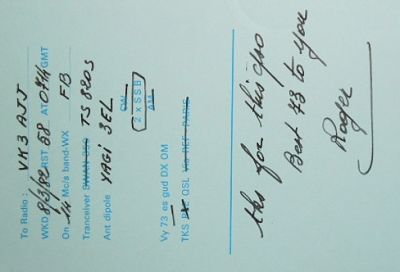 To Radio : VK3 AJJ
WKD 8/3/82 RST 58 AT 0714 GMT
On 14 Mc/s band-WX FB
Tranceiver SWAN 350 TS 820s
Ant dipole YAGI 3EL
CW
2 x SSB
AM
Vy 73 es gud DX OM
TKS PSE QSL via REF - PARIS
tks for this qso
Best 73 to you
Roger